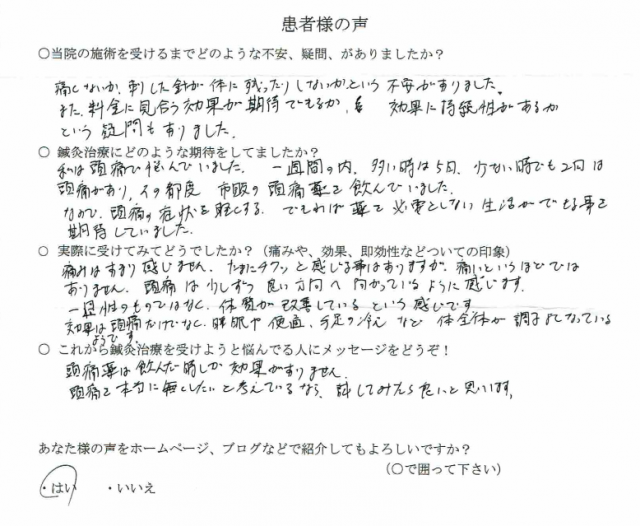 患者様の声
〇当院の施術を受けるまでどのような不安、疑問、がありましたか？
痛くないか、刺した針が体に残ったりしないかという不安がありました。
また、料金に見合う効果が期待できるか、効果に持続性があるか
という疑問もありました。
〇 鍼灸治療にどのような期待をしてましたか？
私は頭痛で悩んでいました。一週間の内、多い時は5回、少ない時でも2回は
頭痛があり、その都度 市販の頭痛薬を飲んでいました。
なので、頭痛の症状を軽くする、できれば薬を必要としない生活ができる事を
期待していました。
〇 実際に受けてみてどうでしたか？（痛みや、効果、即効性などついての印象）
痛みはあまり感じません。たまにチクッと感じる事はありますが、痛いというほどでは
ありません。頭痛は少しずつ良い方向へ向かっているように感じます。
一過性のものではなく、体質が改善しているという感じです。
効果は頭痛だけでなく、睡眠や便通、手足の冷えなど体全体が調子よくなっている
ようです。
〇 これから鍼灸治療を受けようと悩んでる人にメッセージをどうぞ！
頭痛薬は飲んだ時しか効果がありません。
頭痛を本当に無くしたいと考えているなら、試してみたら良いと思います。
あなた様の声をホームページ、ブログなどで紹介してもよろしいですか？
（〇で囲って下さい）
・はい ・いいえ